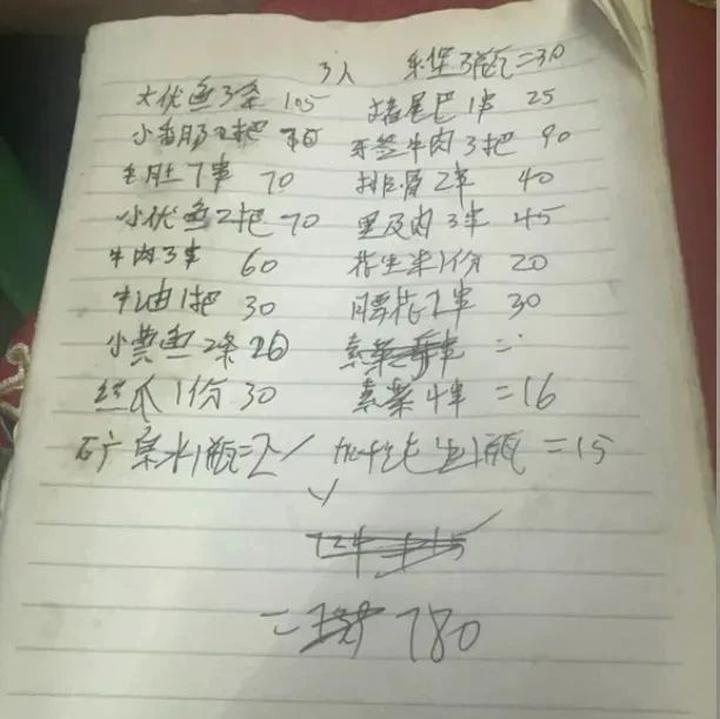 3人 乐堡3瓶=30
大优鱼3条 105 猪尾巴1串 25
小香肠2把 牙签牛肉3把 90
毛肚7串 70 排骨2串 40
小优鱼2把 70 里及肉3串 45
牛肉3串 60 花生米1份 20
牛油1把 30 腰花2串 30
小黄鱼2条 素菜 =
丝瓜1份 30 素菜4串 =16
矿泉水1瓶=2 / 1瓶 =15
= 780